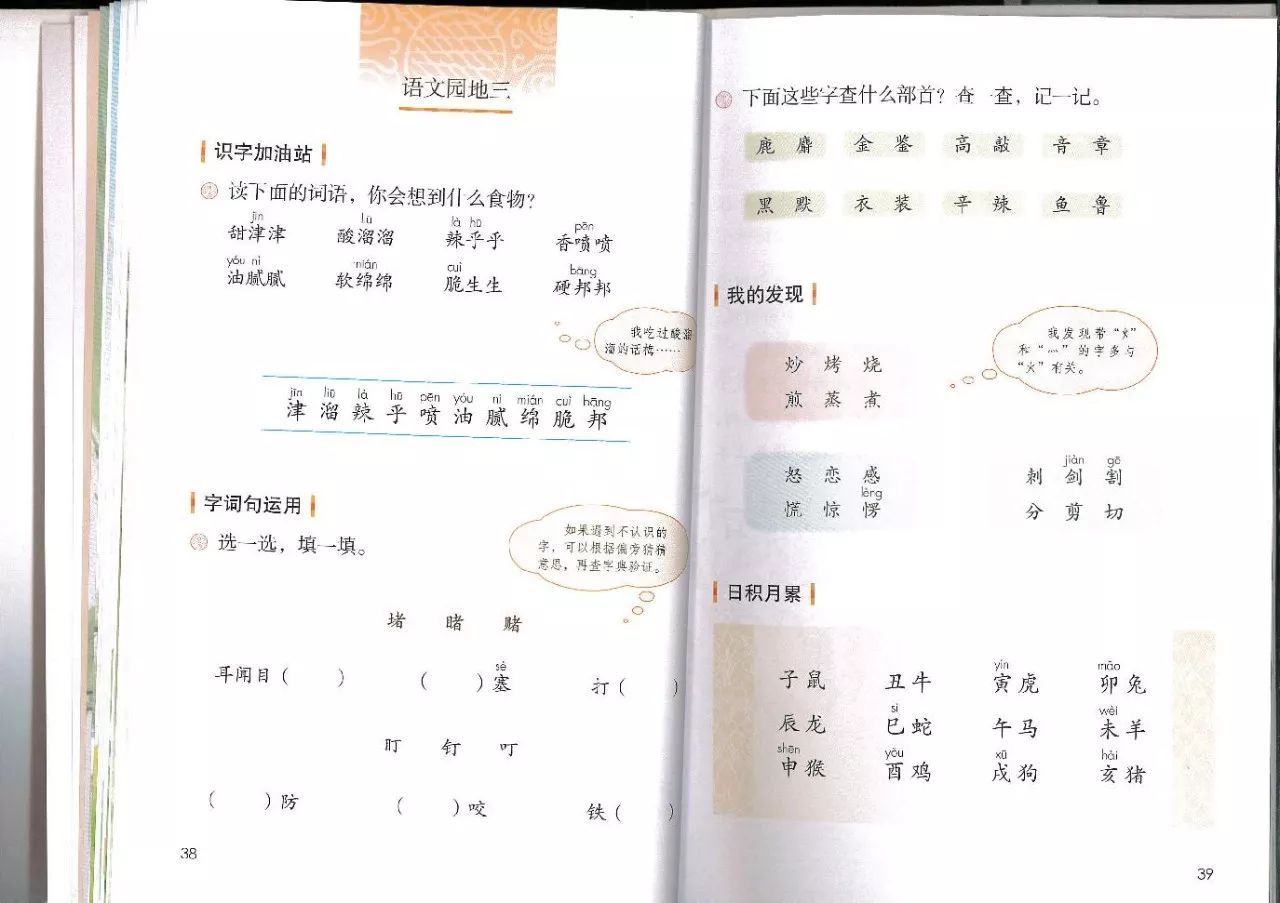 语文园地三
识字加油站
读下面的词语，你会想到什么食物？
jīn liū là hū pēn
甜津津 酸溜溜 辣乎乎 香喷喷
yóu nì mián cuì bāng
油腻腻 软绵绵 脆生生 硬邦邦
我吃过酸溜
溜的话梅……
jīn liū là hū pēn yóu nì mián cuì bāng
津 溜 辣 乎 喷 油 腻 绵 脆 邦
字词句运用
选一选，填一填。
如果遇到不认识的
字，可以根据偏旁猜猜
意思，再查字典验证。
堵 睹 赌
sè
耳闻目（ ） （ ）塞 打（ ）
盯 钉 叮
（ ）防 （ ）咬 铁（ ）
38
下面这些字查什么部首？查一查，记一记。
鹿 麝 金 鉴 高 敲 音 章
黑 默 衣 装 辛 辣 鱼 鲁
我的发现
我发现带“火”
和“灬”的字多与
“火”有关。
炒 烤 烧
煎 蒸 煮
怒 恋 感
lèng
慌 惊 愣
jiàn gē
刺 剑 割
分 剪 切
日积月累
yín mǎo
子鼠 丑牛 寅虎 卯兔
sì wèi
辰龙 巳蛇 午马 未羊
shēn yǒu xū hài
申猴 酉鸡 戌狗 亥猪
39